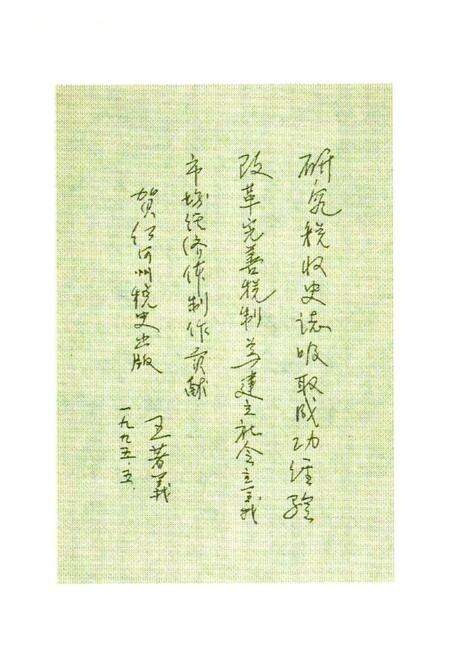 研究税收史志吸取成功经验
改革完善税制为建立社会主义
市场经济体制作贡献
贺红河州税史出版
王著义
一九九五.五.